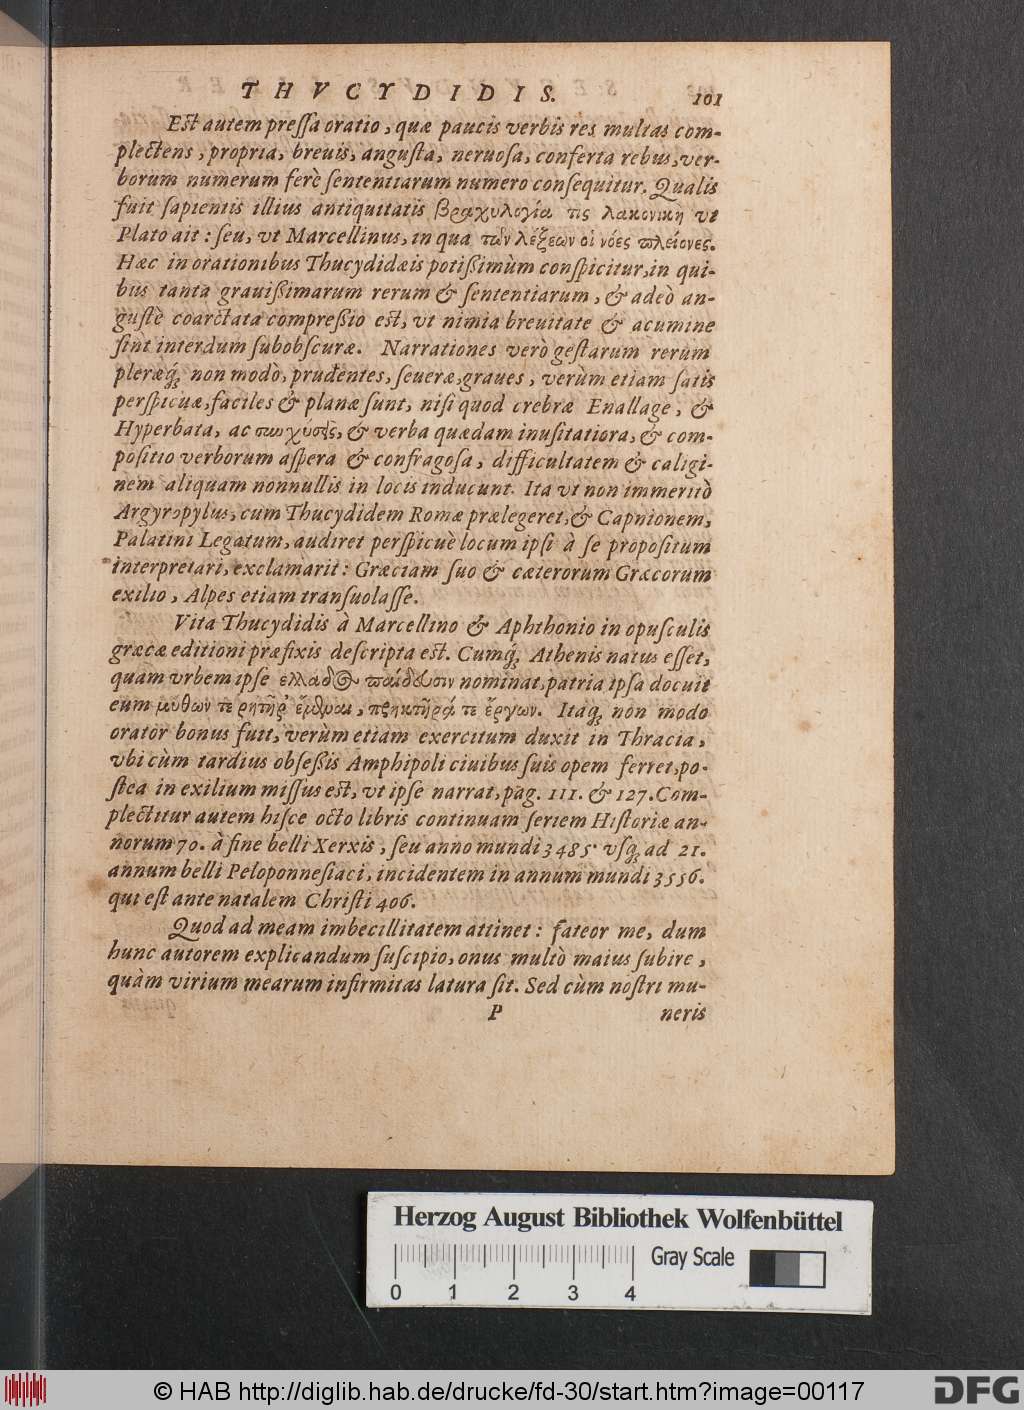 THVCYDIDIS. 101
Est autem pressa oratio, quæ paucis verbis res multas com-
plectens, propria, breuis, angusta, neruosa, conferta rebus, ver-
borum numerum ferè sententiarum numero consequitur. Qualis
fuit sapientis illius antiquitatis βραχυλογία τις λακονικη vt
Plato ait: seu, vt Marcellinus, in qua τῶν λέξεων οἱ νόες πλείονες.
Hæc in orationibus Thucydidæis potißimùm conspicitur, in qui-
bus tanta grauißimarum rerum & sententiarum, & adeò an-
gustè coarctata compreßio est, vt nimia breuitate & acumine
sint interdum subobscuræ. Narrationes verò gestarum rerum
pleræq́; non modò, prudentes, seueræ, graues, verùm etiam satis
perspicuæ, faciles & planæ sunt, nisi quod crebræ Enallage, &
Hyperbata, ac συγχύσεις, & verba quædam inusitatiora, & com-
positio verborum aspera & confragosa, difficultatem & caligi-
nem aliquam nonnullis in locis inducunt. Ita vt non immeritò
Argyropylus, cum Thucydidem Romæ prælegeret, & Capnionem,
Palatini Legatum, audiret perspicuè locum ipsi à se propositum
interpretari, exclamarit: Græciam suo & cæterorum Græcorum
exilio, Alpes etiam transuolasse.
Vita Thucydidis à Marcellino & Aphthonio in opusculis
græcæ editioni præfixis descripta est. Cumq́; Athenis natus esset,
quàm vrbem ipse ελλάδος παίδευσιν nominat, patria ipsa docuit
eum μύθων τε ρητῆρ' ἔμεναι, πρηκτῆρά τε ἔργων. Itaq; non modo
orator bonus fuit, verùm etiam exercitum duxit in Thracia,
vbi cùm tardius obseßis Amphipoli ciuibus suis opem ferret, po-
stea in exilium missus est, vt ipse narrat, pag. 111. & 127. Com-
plectitur autem hisce octo libris continuam seriem Historiæ an-
norum 70. à fine belli Xerxis, seu anno mundi 3485. vsq; ad 21.
annum belli Peloponnesiaci, incidentem in annum mundi 3556.
qui est ante natalem Christi 406.
Quod ad meam imbecillitatem attinet: fateor me, dum
hunc autorem explicandum suscipio, onus multò maius subire,
quàm virium mearum infirmitas latura sit. Sed cùm nostri mu-
P neris
Herzog August Bibliothek Wolfenbüttel
Gray Scale
0 1 2 3 4
© HAB http://diglib.hab.de/drucke/fd-30/start.htm?image=00117 DFG